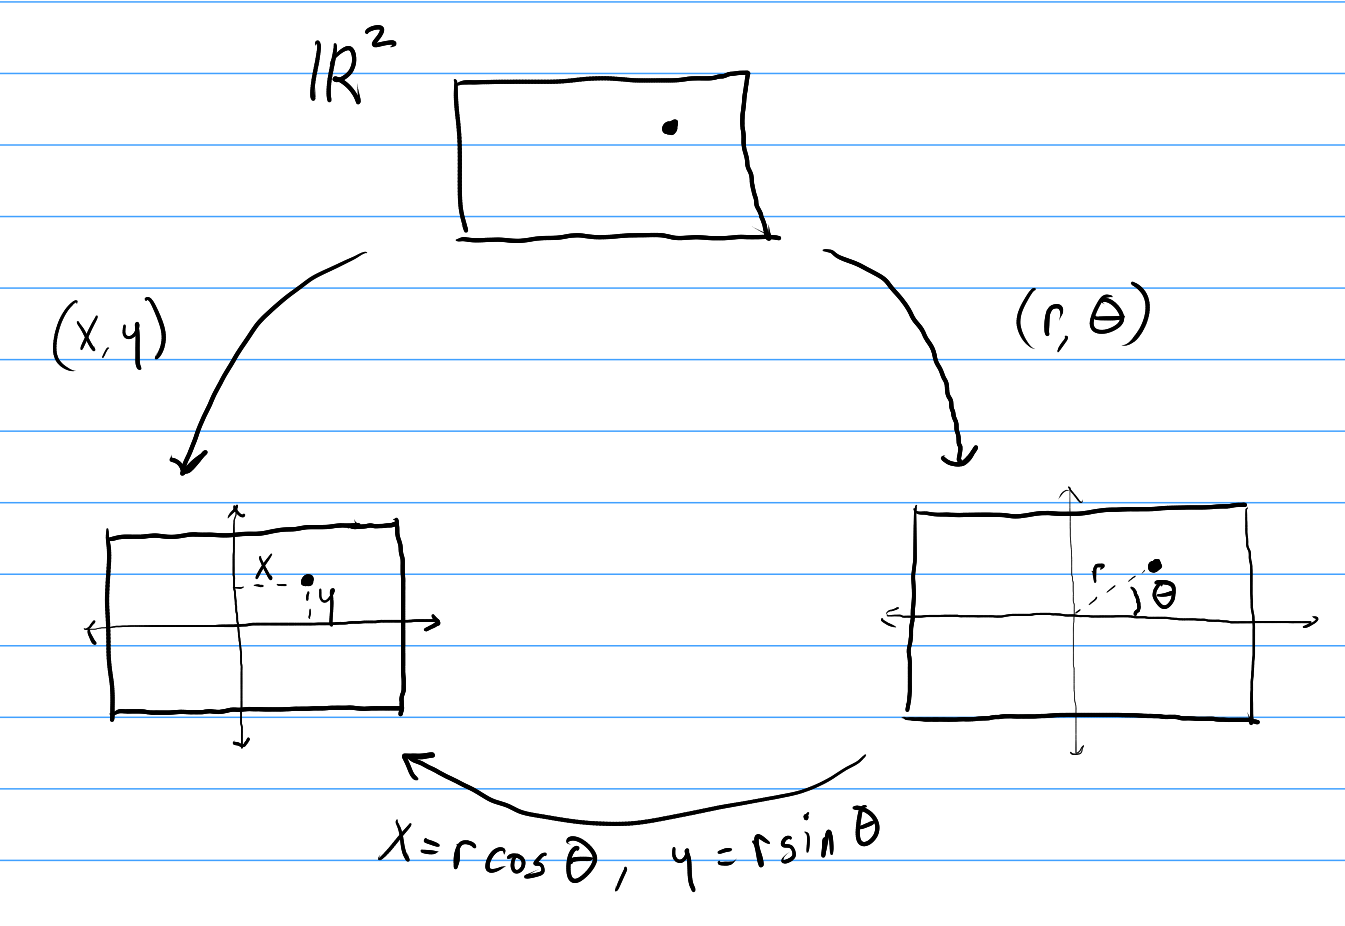 ℝ²
(x, y)
(r, θ)
x
y
r
θ
x = r cos θ, y = r sin θ